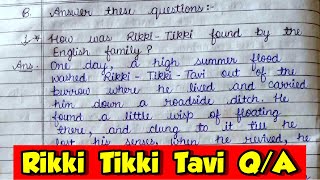 B. Answer these questions:-
1.* How was Rikki-Tikki found by the
English family?
Ans. One day, a high summer flood
washed Rikki-Tikki-Tavi out of the
burrow where he lived and carried
him down a roadside ditch. He
found a little wisp of floating
there, and clung to it till he
lost his senses. when he revived, he
Rikki Tikki Tavi Q/A